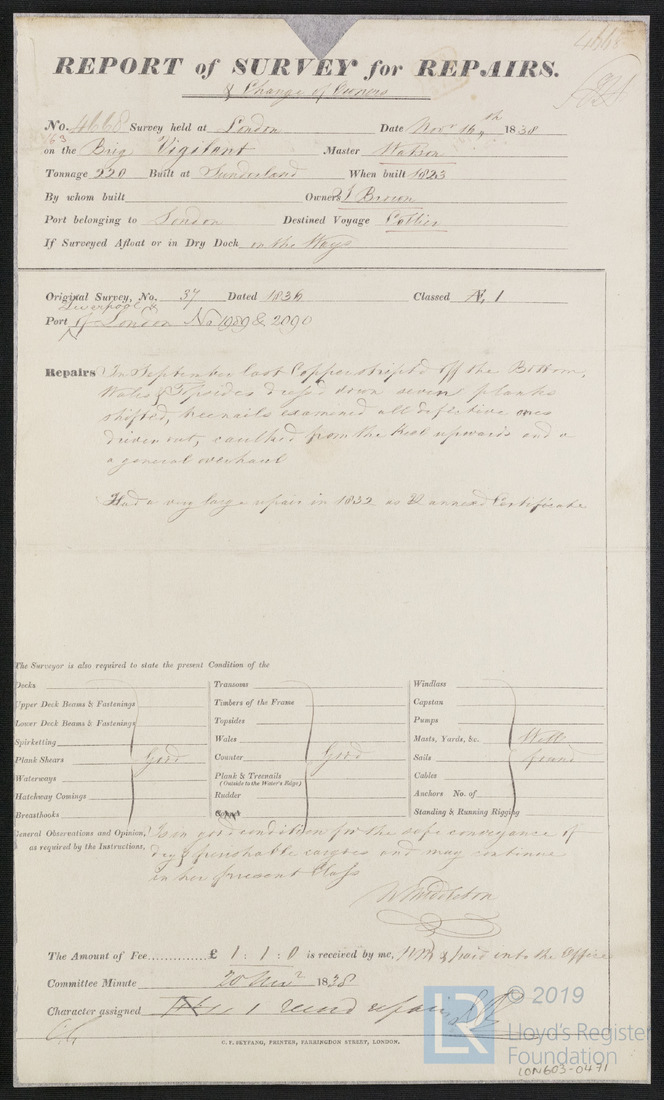 4668
REPORT of SURVEY for REPAIRS.
& Change of Owners
No. 4668 Survey held at London Date Novr 16th 1838
on the Brig Vigilant Master Watson
Tonnage 220 Built at Sunderland When built 1823
By whom built Owners J Brown
Port belonging to London Destined Voyage Collier
If Surveyed Afloat or in Dry Dock on the Ways
Original Survey, No. 37 Dated 1836 Classed Æ 1
Liverpool &
Port of London No 1989 & 2090
Repairs In September last Copper stript off the Bottom,
Wales & Topsides dress'd down seven planks
shifted, treenails examined all defective ones
driven out, caulked from the Keel upwards and a
a general overhaul
Had a very large repair in 1832 as annexed Certificate
The Surveyor is also required to state the present Condition of the
Decks
Upper Deck Beams & Fastenings
Lower Deck Beams & Fastenings
Spirketting
Plank Shears Good
Waterways
Hatchway Comings
Breasthooks
Transoms
Timbers of the Frame
Topsides
Wales
Counter Good
Plank & Treenails
(Outside to the Water's Edge)
Rudder
Windlass
Capstan
Pumps
Masts, Yards, &c. Well
Sails found
Cables
Anchors No. of
Standing & Running Rigging
General Observations and Opinion, Is in good condition for the safe conveyance of
as required by the Instructions, dry & perishable cargoes and may continue
in her present Class
W Middleton
The Amount of Fee £ 1 : 1 : 0 is received by me, WM & paid into the Office
Committee Minute 20 Novr 1838
Character assigned 1 record repairs
C. F. SEYFANG, PRINTER, FARRINGDON STREET, LONDON.
© 2019
LR
Lloyd's Register
Foundation
LON603-0471